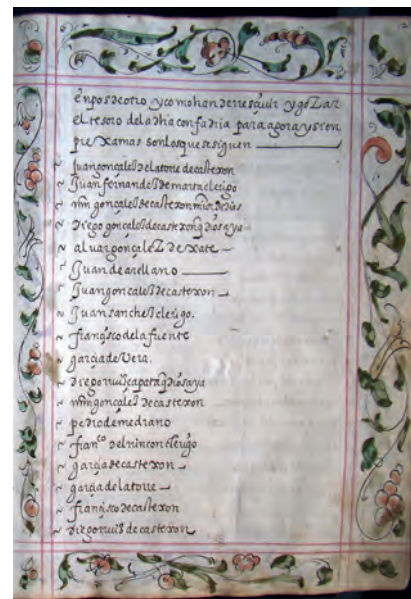 en pos de otro y como han de resçiuir y gozar
el tesoro de la dha confadria para agora y sien
pre xamas son los que se siguen
~ Juan gonçales de la torre de castexon
~ Juan fernandes de marta clerigo
~ mĩn gonçales de castexon
~ diego gonçales de castexon q dios aya
~ aluar gonçalez de xate
~ Juan de arellano
~ Juan gonçales de castexon
~ Juan sanches clerigo.
~ françisco de la fuente
~ garçia de Vera.
~ diego ruis çapata q dios aya
~ mĩn gonçales de castexon
~ pedro de medrano
~ fran.co del rincon clerigo
~ garçia de castexon
~ garçia de la torre
~ françisco de castexon
~ diego ruis de castexon